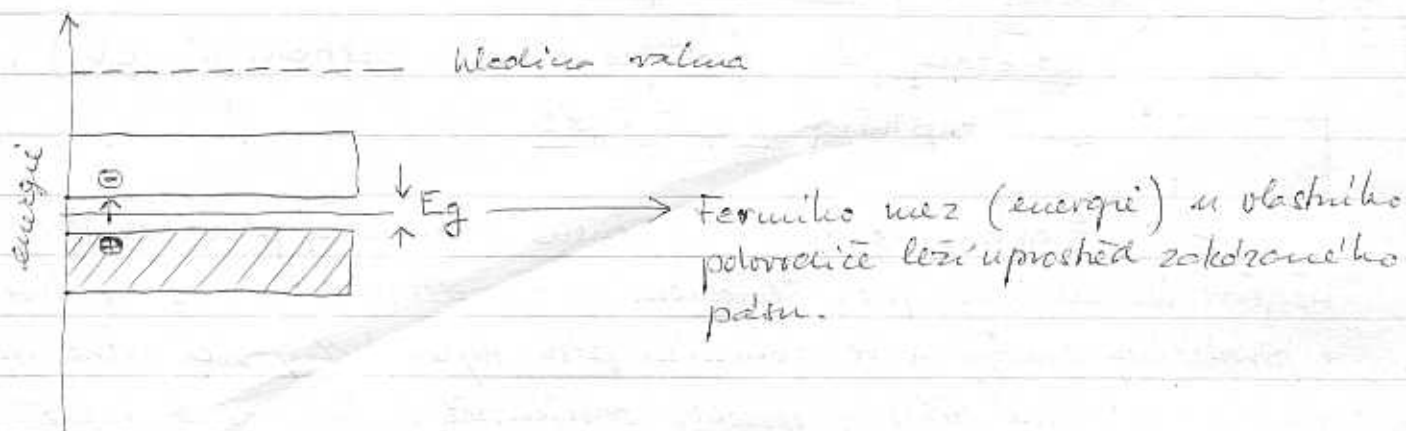 hladina vakua
energie
Eg
Fermiho mez (energie) u vlastního
polovodiče leží uprostřed zakázaného
pásu.